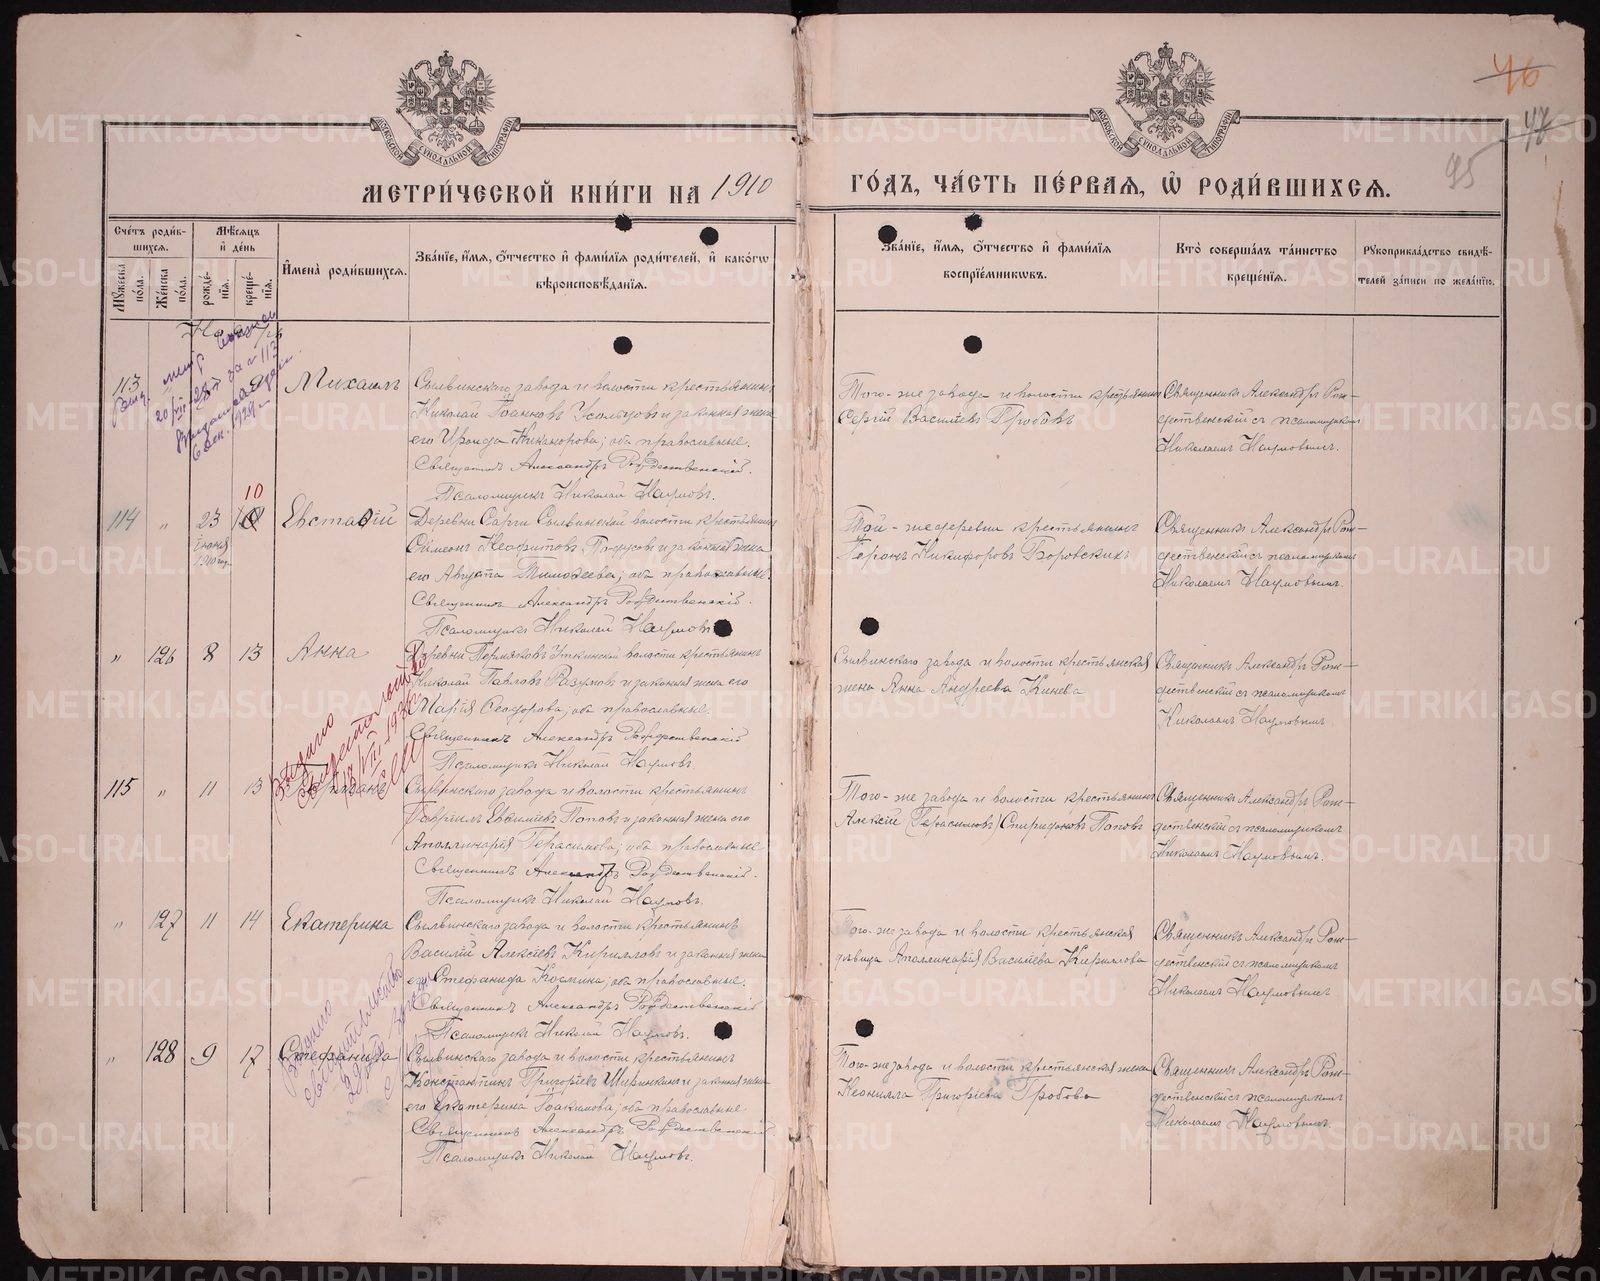 46
47
95
МОСКОВСКОЙ СѴНОДАЛЬНОЙ ТИПОГРАФІИ
МОСКОВСКОЙ СѴНОДАЛЬНОЙ ТИПОГРАФІИ
МЕТРИ́ЧЕСКОЙ КНИ́ГИ НА 1910 ГО́ДЪ, ЧА́СТЬ ПЕ́РВАЯ, Ѡ РОДИ́ВШИХСЯ.
Сче́тъ роди́вшихся.
Мꙋ́жеска по́ла.
Же́нска по́ла.
Мѣ́сяцъ и҆ де́нь
рожде́нїя.
креще́нїя.
И҆мена̀ роди́вшихся.
Зва́нїе, и҆́мя, ѻ҆́тчество и҆ фами́лїя роди́телей, и҆ како́гѡ вѣроисповѣ́данїя.
Зва́нїе, и҆́мя, ѻ҆́тчество и҆ фами́лїя воспрїе́мникѡвъ.
Кто̀ соверша́лъ та́инство креще́нїя.
Рꙋкоприкла́дство свидѣ́телей за́писи по жела́нїю.
113
Михаилъ
Сылвинскаго завода и волости крестьянинъ
Николай Іоанновъ Усольцовъ и законная жена
его Ираида Никанорова; оба православные.
Священникъ Александръ Рождественскій.
Псаломщикъ Николай Наумовъ.
Того-же завода и волости крестьянинъ
Сергій Васильевъ Гробовъ
Священникъ Александръ Рож-
дественскій съ псаломщикомъ
Николаемъ Наумовымъ.
114 " 23 10
іюня
1910 г.
Евстафій
Деревни Сарги Сылвинской волости крестьянинъ
Симеонъ Неофитовъ и законная жена
его Августа Тимофеева; оба православные.
Священникъ Александръ Рождественскій.
Псаломщикъ Николай Наумовъ
Той-же деревни крестьянинъ
Геронъ Никифоровъ Боровскихъ
Священникъ Александръ Рож-
дественскій съ псаломщикомъ
Николаемъ Наумовымъ.
" 126 8 13
Анна
Деревни Пермяковъ Уткинской волости крестьянинъ
Николай Павловъ Разумовъ и законная жена его
Марія Феодорова; оба православные.
Священникъ Александръ Рождественскій
Псаломщикъ Николай Наумовъ.
Сылвинскаго завода и волости крестьянская
жена Анна Андреева Кинева
Священникъ Александръ Рож-
дественскій съ псаломщикомъ
Николаемъ Наумовымъ.
Выдано
свидетельство
18/VII-1936
115 " 11 13
Сылвинскаго завода и волости крестьянинъ
Гавріилъ Евѳиміевъ Поповъ и законная жена его
Аполлинарія Герасимова; оба православные
Священникъ Александръ Рождественскій.
Псаломщикъ Николай Наумовъ.
Того-же завода и волости крестьянинъ
Алексій (Герасимовъ) Спиридоновъ Поповъ
Священникъ Александръ Рож-
дественскій съ псаломщикомъ
Николаемъ Наумовымъ.
" 127 11 14
Екатерина
Сылвинскаго завода и волости крестьянинъ
Василій Алексіевъ Кирилловъ и законная жена
его Стефанида Косьмина; оба православные.
Священникъ Александръ Рождественскій
Псаломщикъ Николай Наумовъ.
Того-же завода и волости крестьянская
дѣвица Аполлинарія Васильева Кириллова
Священникъ Александръ Рож-
дественскій съ псаломщикомъ
Николаемъ Наумовымъ
Выдано
свидетельство
" 128 9 17
Стефанида
Сылвинскаго завода и волости крестьянинъ
Константинъ Григорьевъ Ширинкинъ и законная жена
его Екатерина Іоакимова; оба православные.
Священникъ Александръ Рождественскій
Псаломщикъ Николай Наумовъ.
Того-же завода и волости крестьянская жена
Неонилла Григорьева Гробова
Священникъ Александръ Рож-
дественскій съ псаломщикомъ
Николаемъ Наумовымъ.
METRIKI.GASO-URAL.RU